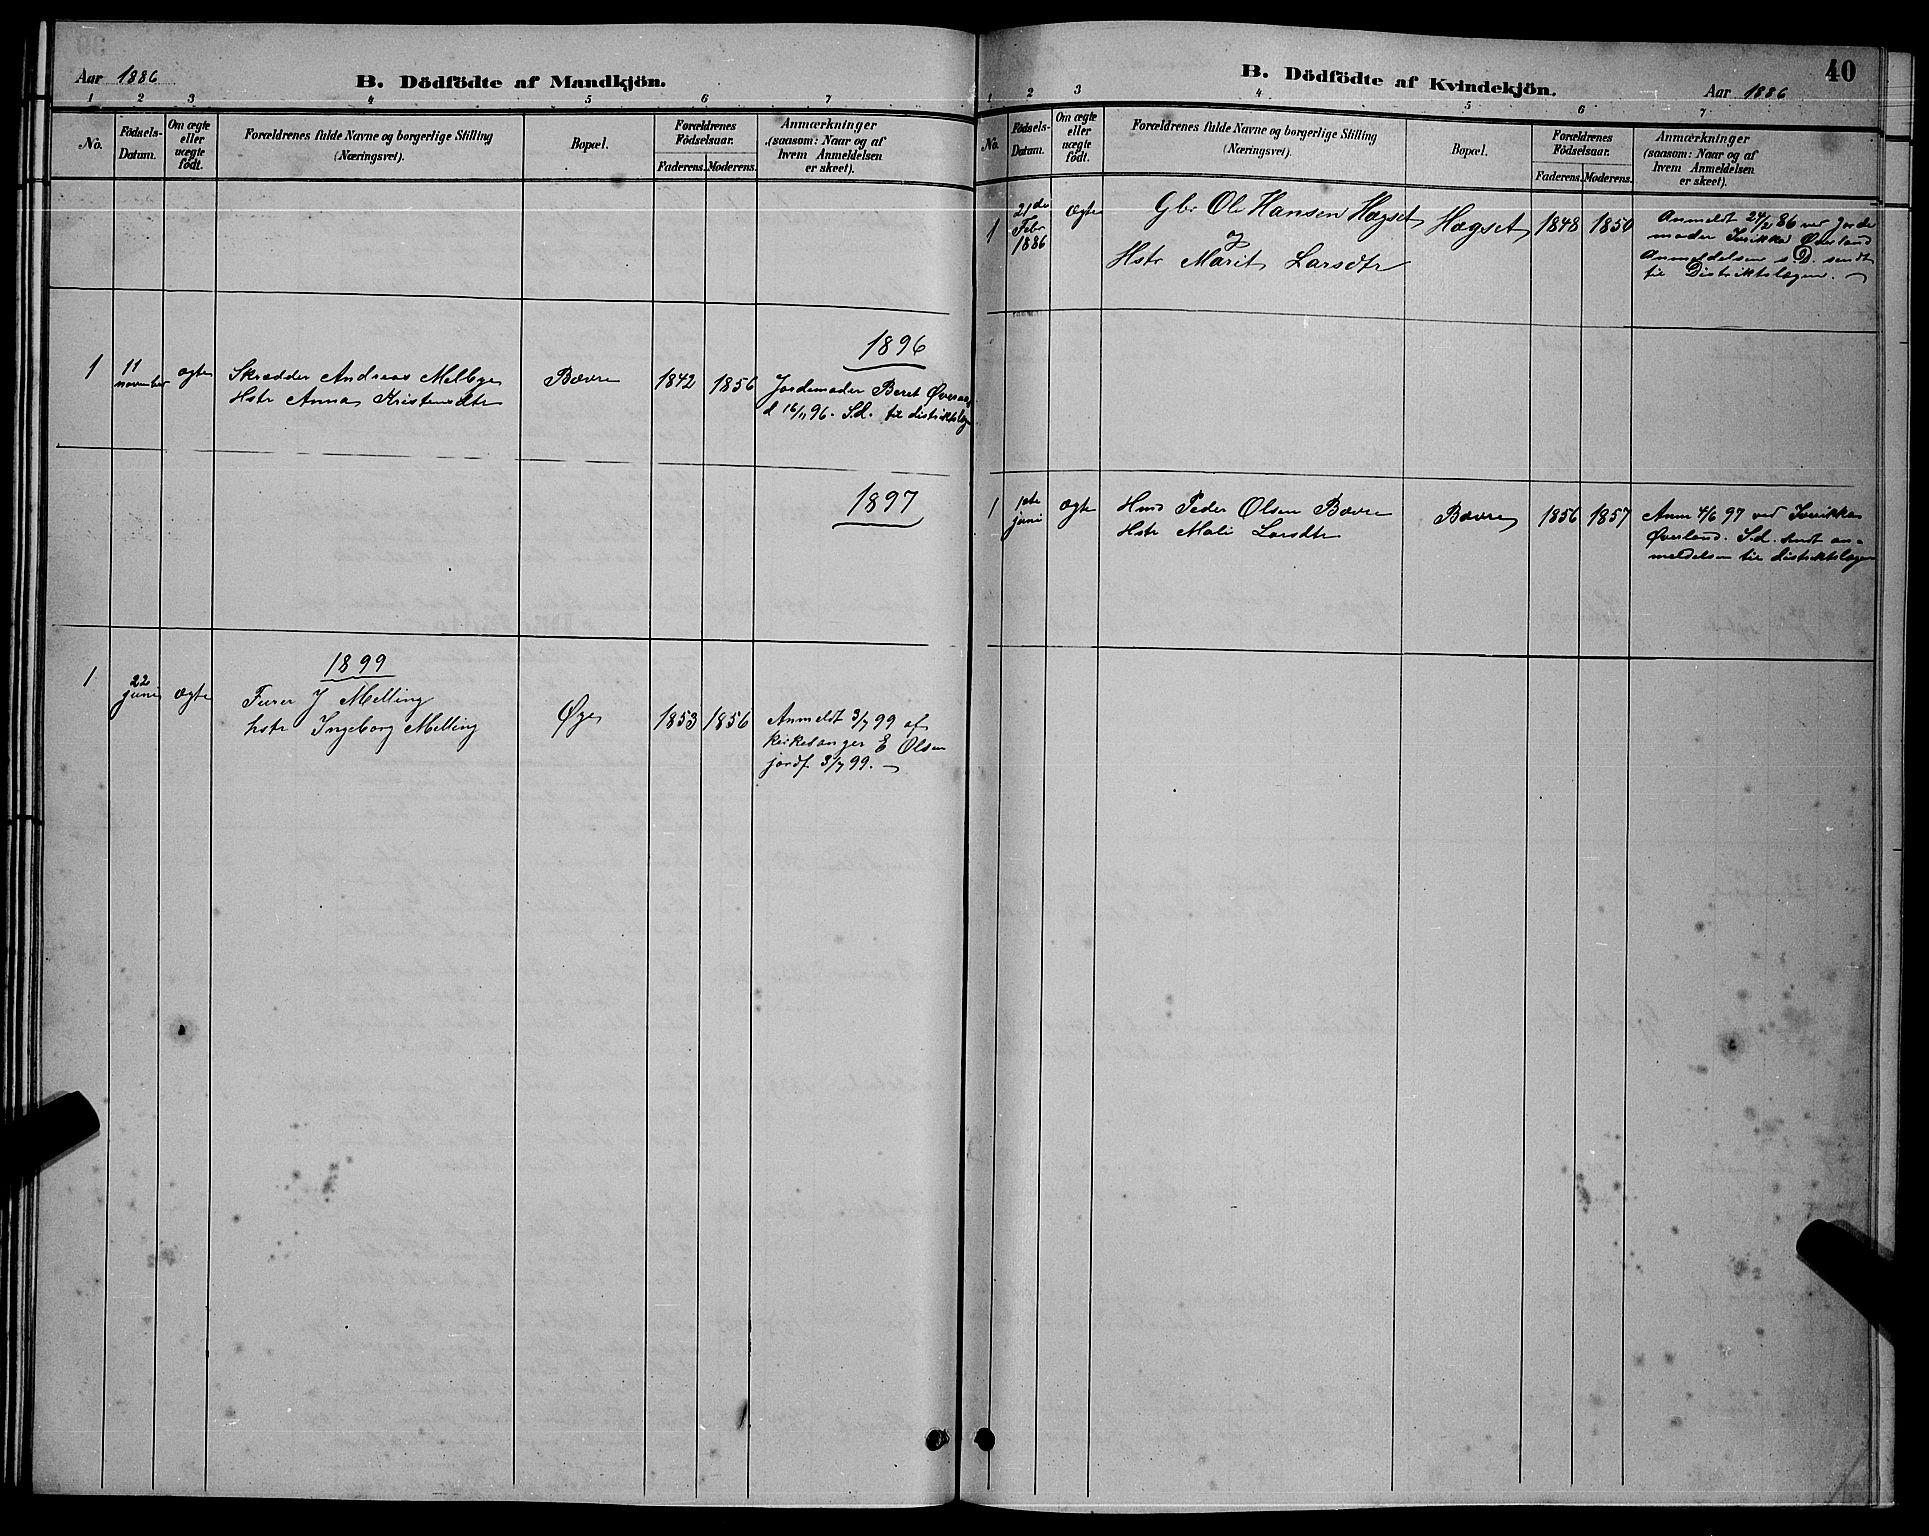 Aar 1886
B. Dödfödte af Mandkjön.
1 2 3 4 5 6 7
No.
Födsels-
Datum.
Om ægte
eller
uægte
födt.
Forældrenes fulde Navne og borgerlige Stilling
(Næringsvei).
Bopæl.
Forældrenes
Födselsaar.
Faderens. Moderens.
Anmærkninger
(saasom: Naar og af
hvem Anmeldelsen
er skeet).
1896
1 11 ægte Skrædder Andreas Melbye Bævre 1842 1856 Jordemoder Beret
november Hstr Anna Kristensdtr d 16/11 96. S.d. til distriktslæg
1897
1899
1 22 ægte J Melling Øye 1853 1856 Anmeldt 3/7 99 af
juni hstr Ingeborg Melling kirkesanger E Olsen
jordf. 3/7 99.
40
B. Dödfödte af Kvindekjön.
Aar 1886
1 2 3 4 5 6 7
No.
Födsels-
Datum.
Om ægte
eller
uægte
födt.
Forældrenes fulde Navne og borgerlige Stilling
(Næringsvei).
Bopæl.
Forældrenes
Födselsaar.
Faderens. Moderens.
Anmærkninger
(saasom: Naar og af
hvem Anmeldelsen
er skeet).
1 21de Febr 1886 ægte Gbr Ole Hansen Hægset Hægset 1848 1850 Anmeldt 24/2 86 ved Jorde
og moder Øverland
Hstr Marit Larsdtr Anmeldelsen s.D. sendt
til Distriktslægen.
1 1ste juni ægte Hms Peder Olsen Bævre Bævre 1856 1857 Anm 4/6 97 ved
Hstr Mali Larsdtr Øverland. S.d. sendt an-
meldelsen til distriktslægen